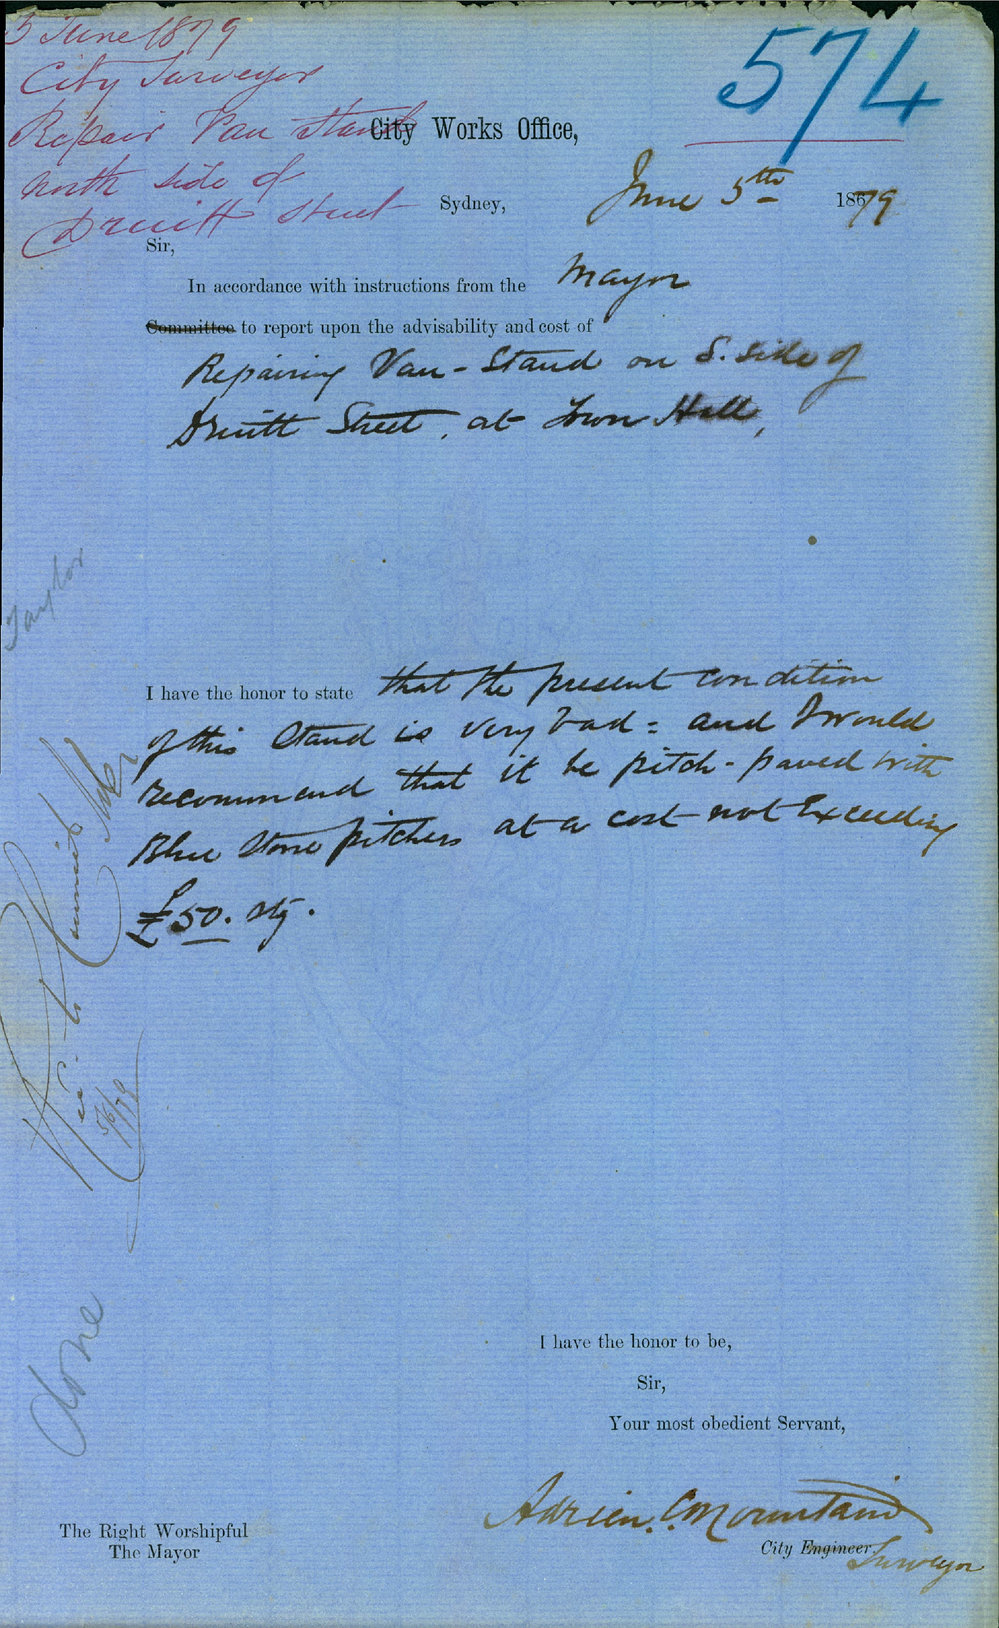 5 June 1879
City Surveyor
Repair Van Stand
North side of
Druitt Street
574
City Works Office,
Sydney, June 5th 1879
Sir,
In accordance with instructions from the Mayor
Committee to report upon the advisability and cost of
Repairing Van-Stand on S. side of
Druitt Street, at Town Hall,
Taylor
I have the honor to state that the present condition
of this Stand is very bad = and I would
recommend that it be pitch-paved with
Blue Stone pitchers at a cost not Exceeding
£50. stg.
Rec. to Committee
5/6/79
done
I have the honor to be,
Sir,
Your most obedient Servant,
Adrien C. Mountain
City Engineer Surveyor
The Right Worshipful
The Mayor